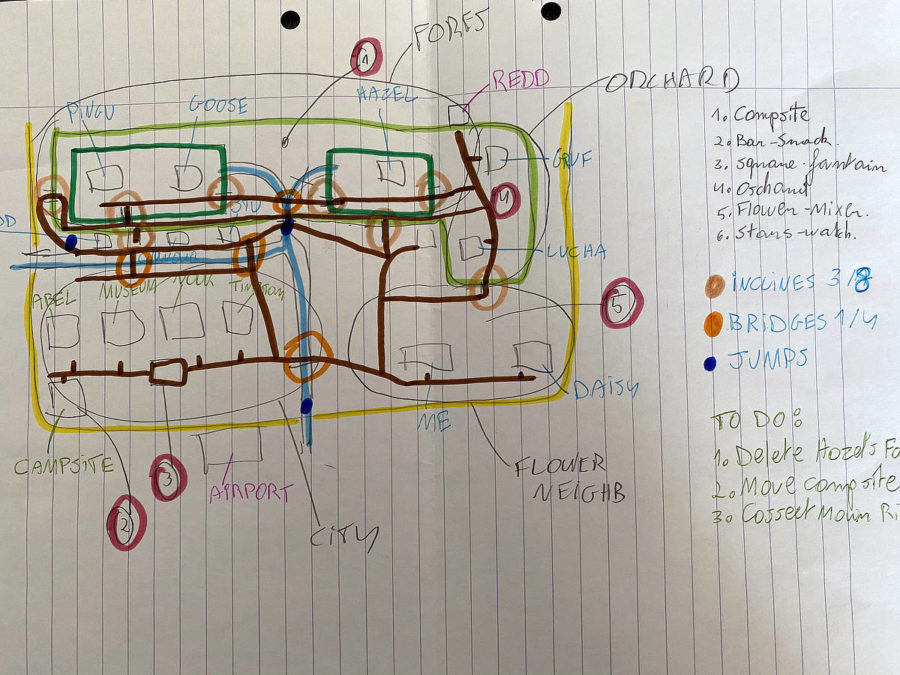 FORES
1
REDD
ORCHARD
PINGU
GOOSE
HAZEL
1. Compsite
2. Bar-Smack
3. Square-fountain
4. Orchard
5. Flower-Mixer.
6. Stars-watch.
GRUF
4
LUCHA
INCLINES 3/8
BRIDGES 1/4
JUMPS
ABEL
MUSEUM
NOOK
5
ME
DAISY
TO DO:
1. Delete Hazel's Fa
2. Move Compsite
3. Correct Main Ri
CAMPSITE
3
AIRPORT
FLOWER
NEIGHB
2
CITY